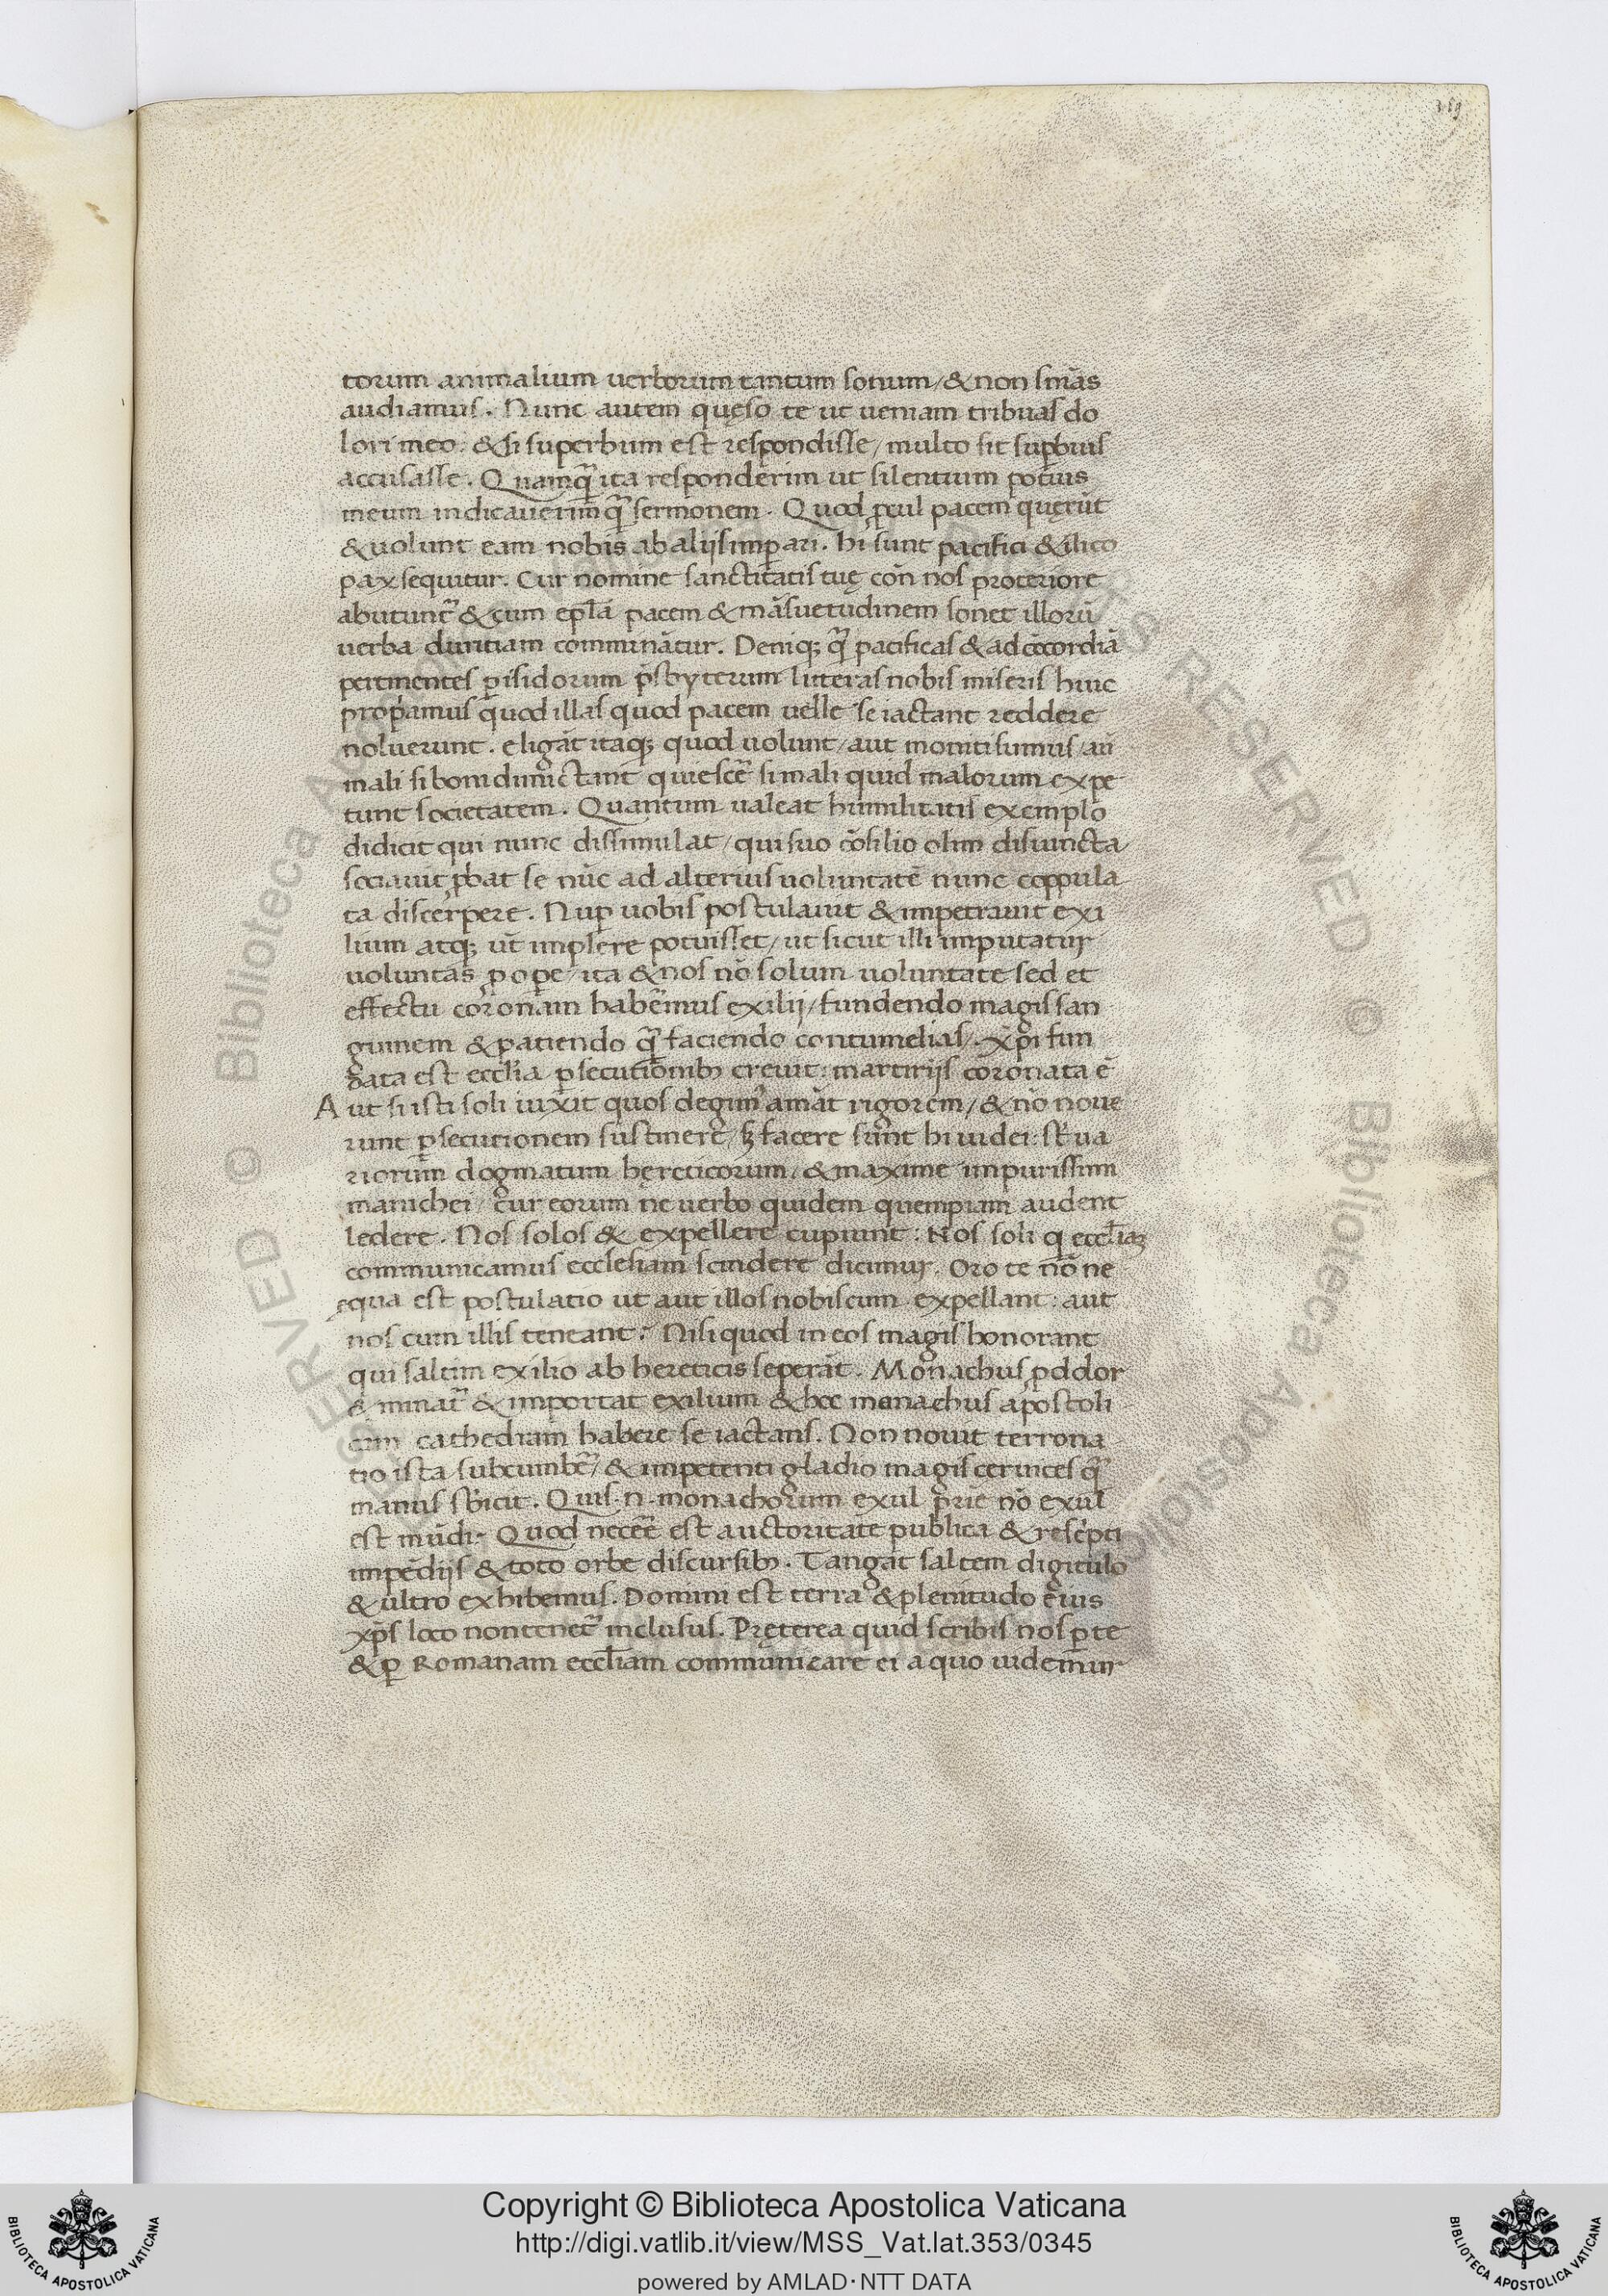 169
torum animalium uerborum tantum sonum/ & non smãs
audiamus. Nunc autem quęso te ut ueniam tribuas do
lori meo: & si superbum est respondisse/ multo sit supbius
accusasse. Quamq̃ ita responderim ut silentium potius
meum indicauerim q̃ sermonem. Quod pcul pacem quęrũt
& uolunt eam nobis ab aliis imp ari. hi sunt pacifici & ilico
pax sequitur. Cur nomine sanctitatis tuę con̄ nos proteriore
abutunt̃ & cum epl̃a pacem & mãsuetudinem sonet illorũ
uerba duritiam comminãtur. Deniq; q̃ pacificas & ad cõcordiã
pertinentes p isidorum p̃sbyterum litteras nobis miseris hinc
propamus quod illas quod pacem uelle se iactant reddere
noluerunt. eligãt itaq; quod uolunt/ aut moniti sumus/ aũ
mali si boni dimictant quiescẽ si mali quid malorum expe
tunt societatem. Quantum ualeat humilitatis exemplo
didicit qui nunc dissimulat/ qui suo cõsilio olim disiuncta
sociauit pbat se nũc ad alterius uoluntatẽ nunc coppula
ta discerpere. Nup uobis postulauit & impetrauit exi
lium atq; ut̃ implere potuisset/ ut sicut illi imputatur
uoluntas p ope/ ita & nos nõ solum uoluntate sed et
effectu coronam habemus exilij/ fundendo magis san
guinem & patiendo q̃ faciendo contumelias/. xp̃i fun
data est eccl̃ia psecutionib; creuit: martirijs coronata ẽ
Aut si isti soli iuxit quos degim̃ amãt rigorem/ & nõ noue
runt psecutionem sustinere/ sʒ facere sunt hi iudei: st̃ ua
riorum dogmatum hęreticorum/ & maxime impurissimi
manichei/ cur eorum ne uerbo quidem quempiam audent
ledere. Nos solos & expellere cupiunt: Nos soli q eccl̃iaʒ
communicamus ecclesiam scindere dicimur. Oro te nõ ne
ęqua est postulatio ut aut illos nobiscum expellant: aut
nos cum illis teneant? Nisi quod in eos magis honorant
qui saltim exilio ab hereticis seperãt. Monachus pddor
& minat̃ & importat exilium & hoc monachus apostoli
cam cathedram habere se iactans. Non nouit terrona
tio ista subcumbẽ/ & impetenti gladio magis ceruices q̃
manus sbicit. Quis .n. monachorum exul prię nõ exul
est mũdi. Quod necẽe est auctoritate publica & rescipti
impẽdijs & toto orbe discursib;. Tangat saltem digitulo
& ultro exhibemus. Domini est terra & plenitudo eius
xp̃s loco non tenet̃ inclusus. Pręterea quid scribis nos p te
& p Romanam eccl̃iam communicare ei a quo uidemur
Copyright © Biblioteca Apostolica Vaticana
http://digi.vatlib.it/view/MSS_Vat.lat.353/0345
powered by AMLAD·NTT DATA
BIBLIOTECA APOSTOLICA VATICANA
BIBLIOTECA APOSTOLICA VATICANA